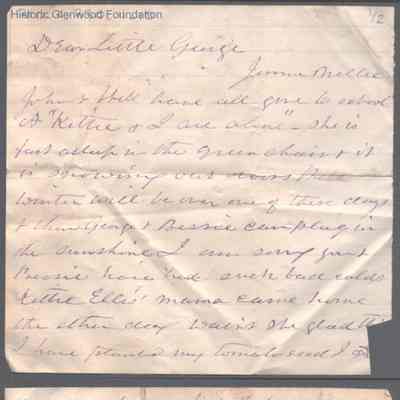 Historic Glenwood Foundation
1/2
Dear Little George
Jennie Nellie
John & Hill have all gone to school
& "Kittie & I are alone" She is
fast asleep in the green chair & it
is snowing out doors
Winter will be over one of these days
& then George & Bessie can play in
the sunshine I am sorry you &
Bessie have had such bad colds
Kittie Ellis' mama came home
the other day wasn't she glad
I have planted my tomato seed I